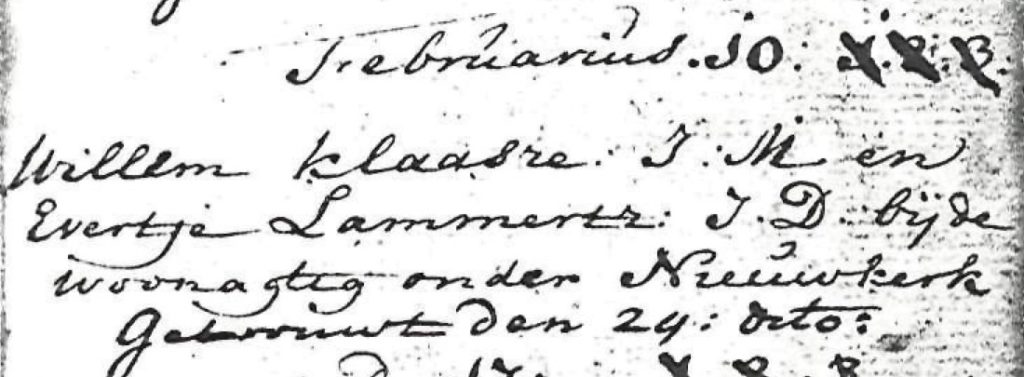 Februarius. 10:
Willem klaasze: J: M en
Evertje Lammertz: J. D. bijde
woonagtig onder Nieuwkerk
Getrouwt den 24: dito: